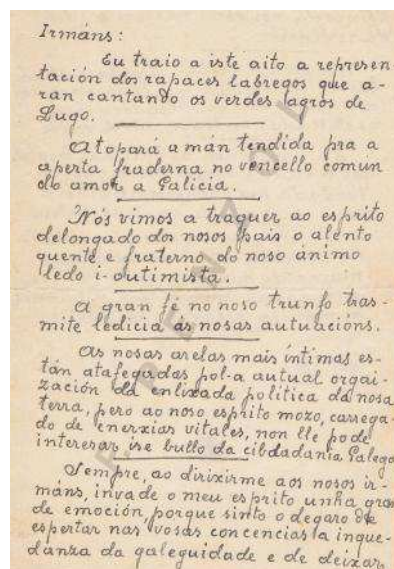 Irmáns:
Eu traio a iste aito a represen
tación dos rapaces labregos que a-
ran cantando os verdes agros de
Lugo.
Atopará a mán tendida pra a
aperta fraderna no vencello comun
do amor a Galicia.
Nós vimos a traguer ao esprito
delongado dos nosos pais o alento
quente e fraterno do noso ánimo
ledo i-outimista.
A gran fé no noso trunfo tras-
mite ledicia ás nosas autuacións.
As nosas arelas mais íntimas es-
tán atafegadas pol-a autual orgai-
zación da enlixada política da nosa
terra, pero ao noso esprito mozo, carrega-
do de enerxias vitales, non lle pode
interesar ise bullo da cibdadania Galega
Sempre, ao dirixirme aos nosos ir-
máns, invade o meu esprito unha gran
de emoción porque sinto o degaro de
espertar nas vosas concencias a inque-
danza da galeguidade e de deixar